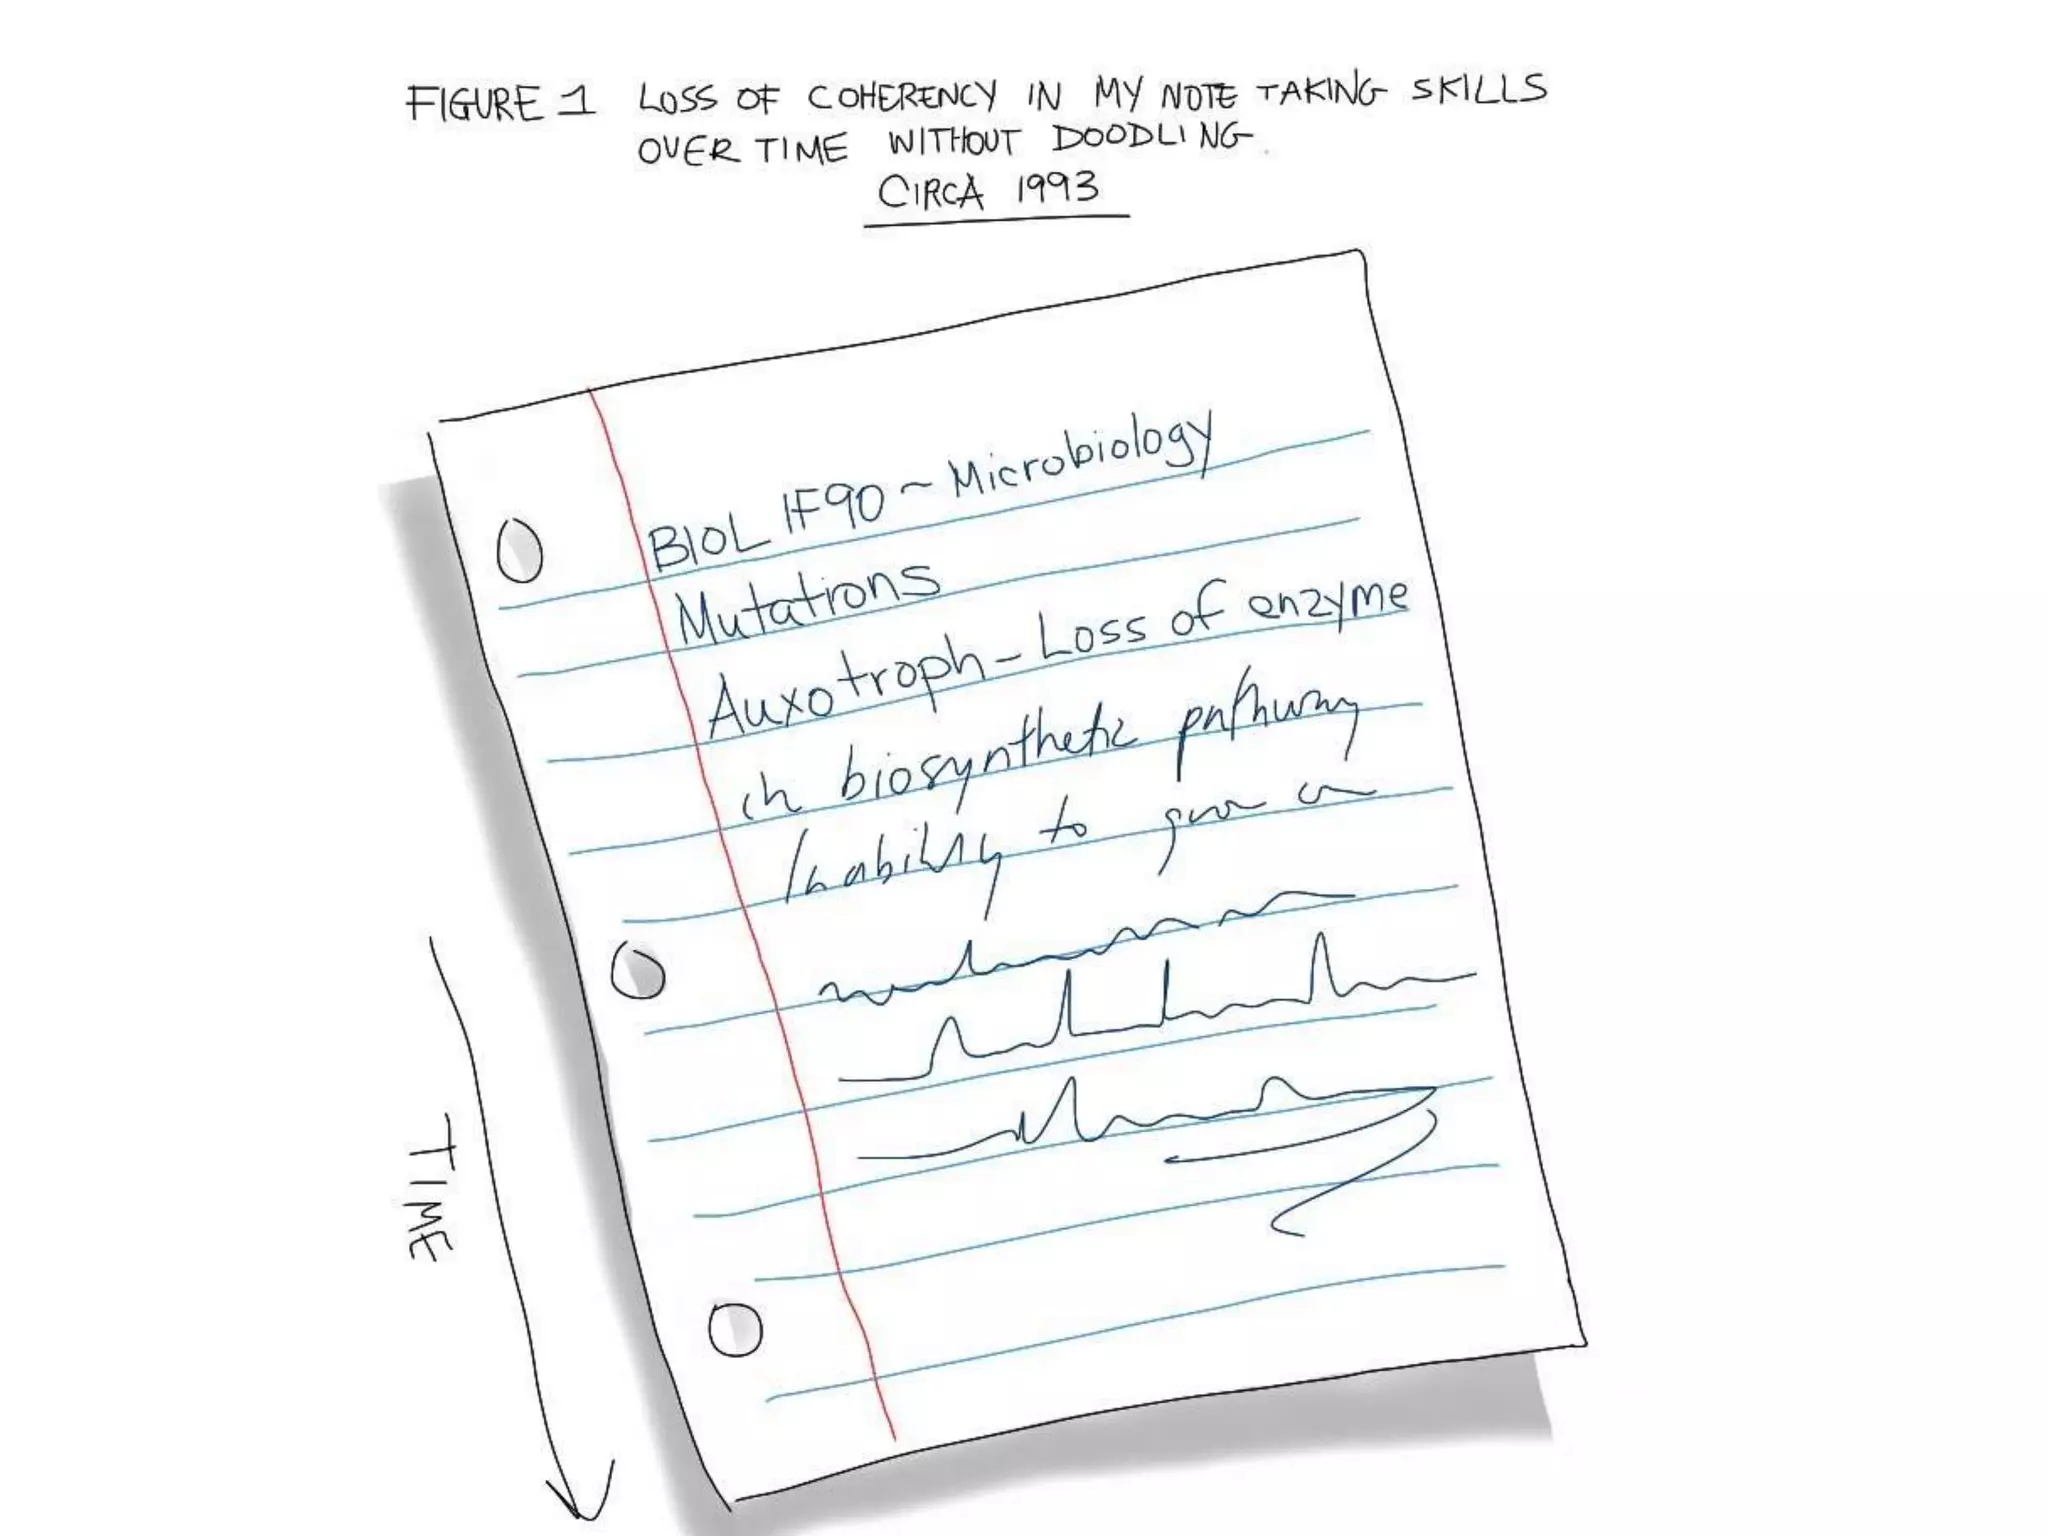 FIGURE 1 LOSS OF COHERENCY IN MY NOTE TAKING SKILLS
OVER TIME WITHOUT DOODLING.
CIRCA 1993
BIOL 1F90 ~ Microbiology
Mutations
Auxotroph - Loss of enzyme
in biosynthetic pathway
Inability to grow on
TIME